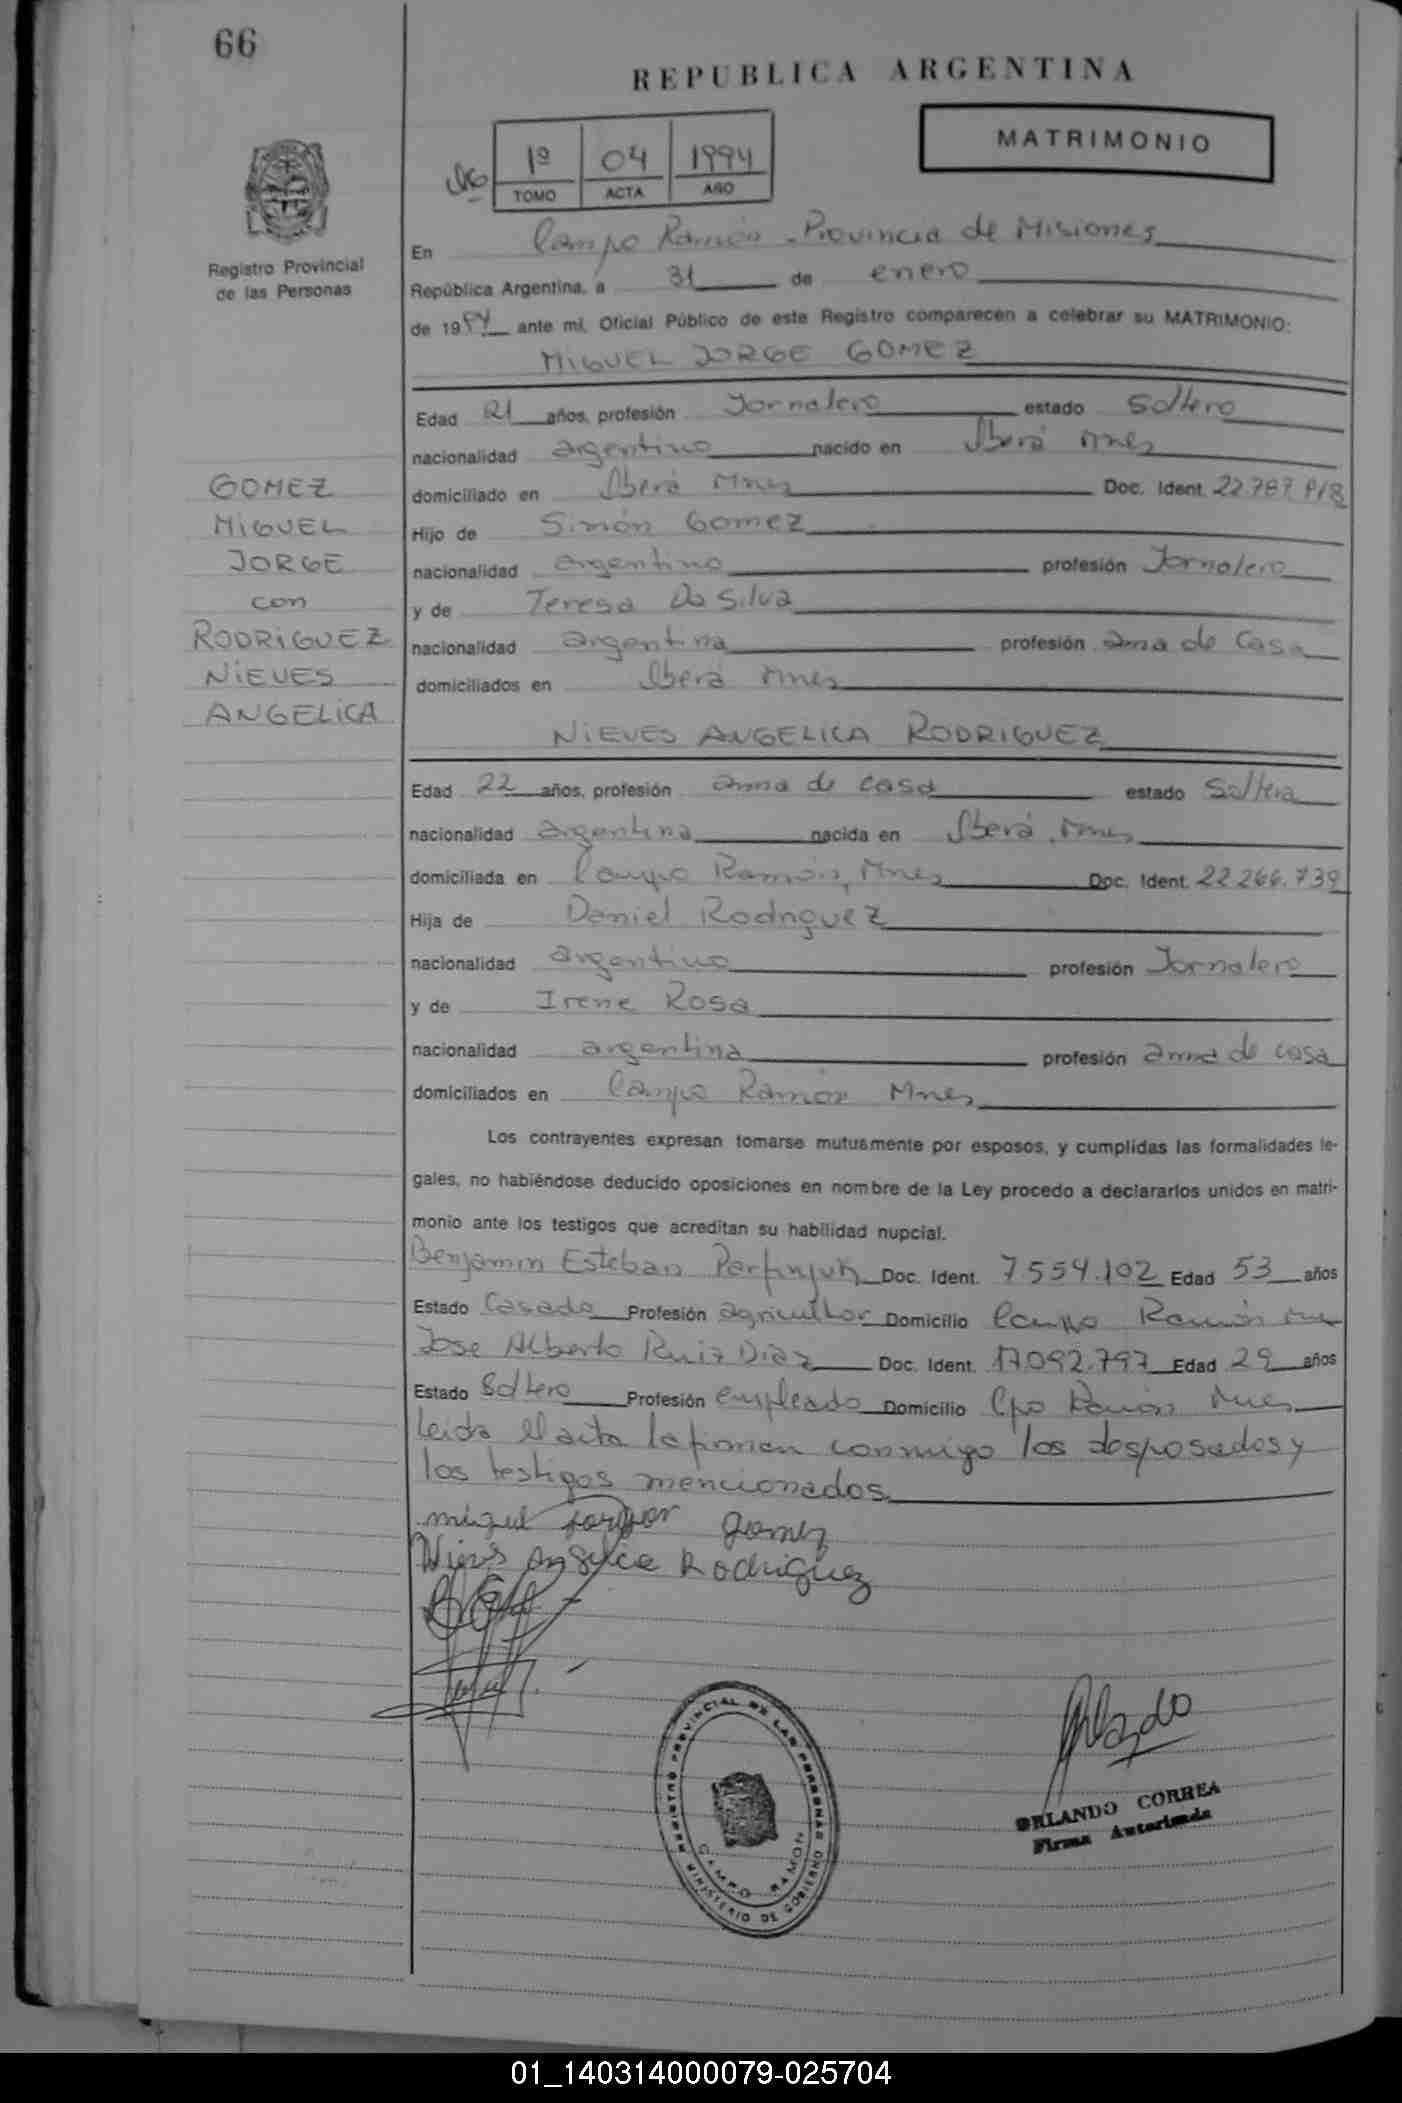 66
REPUBLICA ARGENTINA
MATRIMONIO
1º 04 1994
TOMO ACTA AÑO
Registro Provincial
de las Personas
En Campo Ramón - Provincia de Misiones
República Argentina, a 31 de enero
de 1994 ante mí, Oficial Público de este Registro comparecen a celebrar su MATRIMONIO:
MIGUEL JORGE GOMEZ
Edad 21 años, profesión Jornalero estado Soltero
nacionalidad argentino nacido en Iberá Mnes
domiciliado en Iberá Mnes Doc. Ident. 22.787.918
Hijo de Simón Gomez
nacionalidad argentino profesión Jornalero
y de Teresa Da Silva
nacionalidad argentina profesión ama de Casa
domiciliados en Iberá Mnes
GOMEZ
MIGUEL
JORGE
con
RODRIGUEZ
NIEVES
ANGELICA
NIEVES ANGELICA RODRIGUEZ
Edad 22 años, profesión ama de casa estado Soltera
nacionalidad argentina nacida en Iberá, Mnes
domiciliada en Campo Ramón, Mnes Doc. Ident. 22.266.739
Hija de Daniel Rodriguez
nacionalidad argentino profesión Jornalero
y de Irene Rosa
nacionalidad argentina profesión ama de casa
domiciliados en Campo Ramón Mnes
Los contrayentes expresan tomarse mutuamente por esposos, y cumplidas las formalidades le-
gales, no habiéndose deducido oposiciones en nombre de la Ley procedo a declararlos unidos en matri-
monio ante los testigos que acreditan su habilidad nupcial.
Benjamin Esteban Doc. Ident. 7554.102 Edad 53 años
Estado Casado Profesión agricultor Domicilio Campo Ramón Mnes
Jose Alberto Ruiz Diaz Doc. Ident. 17.092.797 Edad 29 años
Estado Soltero Profesión empleado Domicilio Cpo Ramón Mnes
Leida el acta la firman conmigo los desposados y
los testigos mencionados
miguel gomez
Nieves Angelica Rodriguez
REGISTRO PROVINCIAL DE LAS PERSONAS
MINISTERIO DE GOBIERNO
CAMPO RAMON
Orlando
ORLANDO CORREA
Firma Autorizada
01_140314000079-025704